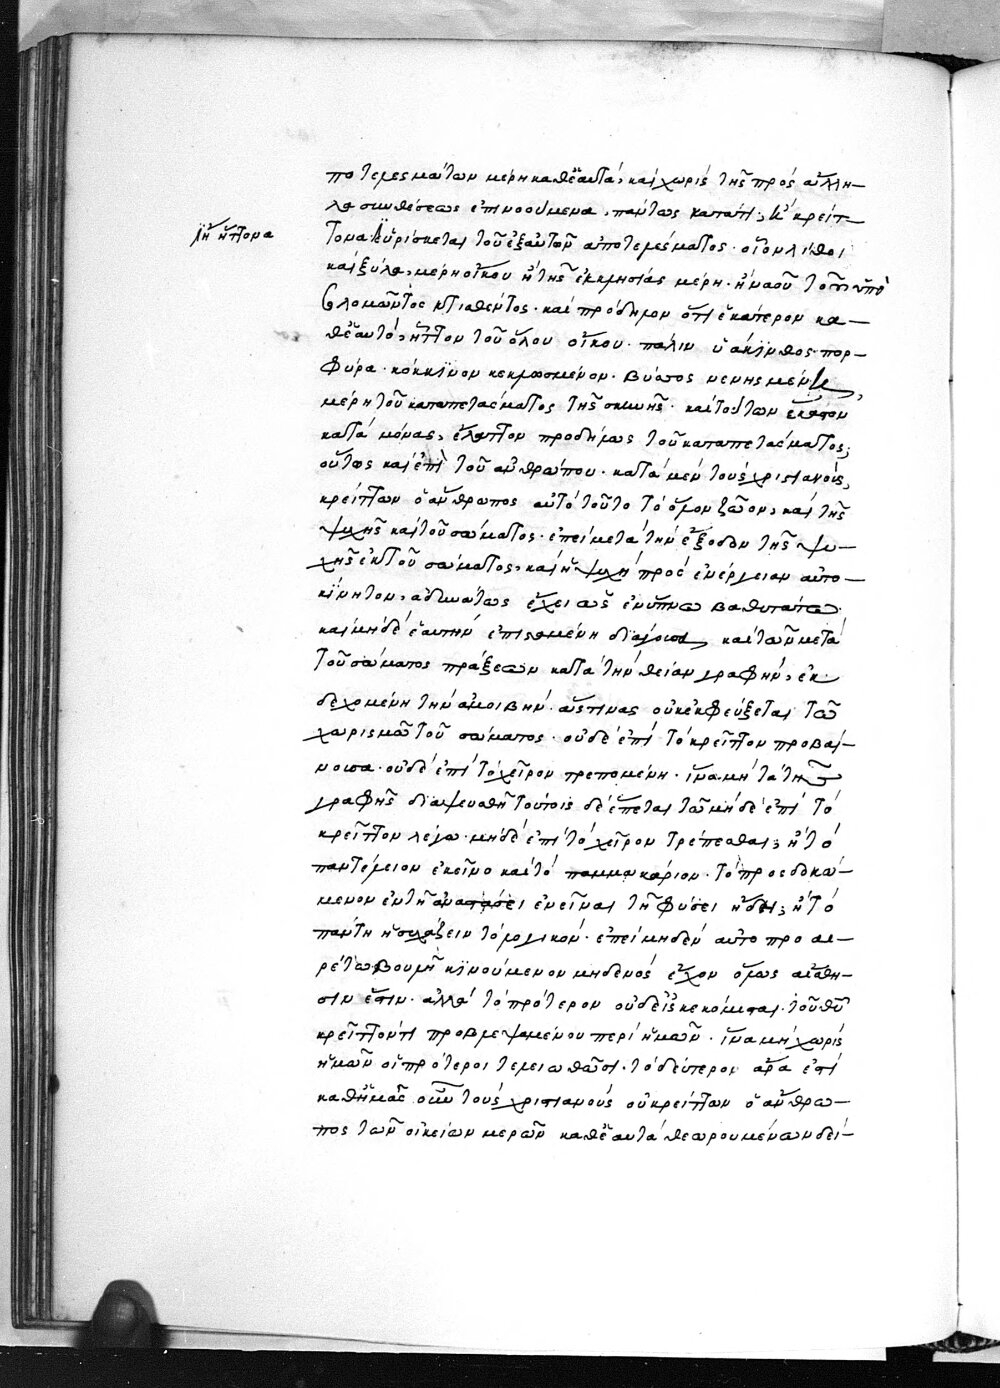 ποτελεσμάτων μέρη καθ' ἑαυτὰ, καὶ χωρὶς τῆς πρὸς ἄλλη-
λα συνθέσεως ἐπινοούμενα, πάντως κατά τι, κρείτ-
ἢ ἥττονα
τονα εὑρίσκεται τοῦ ἐξ αὐτῶν ἀποτελέσματος· οἷον λίθοι
καὶ ξύλα, μέρη οἴκου ἢ τῆς ἐκκλησίας μέρη· ἢ ναοῦ τοῦ ὑπὸ
Σολομῶντος κτισθέντος· καὶ πρόδηλον ὅτι ἑκάτερον κα-
θ' ἑαυτὸ, ἧττον τοῦ ὅλου οἴκου· πάλιν ὑάκινθος· πορ-
φύρα· κόκκινον κεκλωσμένον· βύσσος νενησμένη,
μέρη τοῦ καταπετάσματος τῆς σκηνῆς· καὶ τούτων ἕκαστον
κατὰ μόνας, ἔλαττον προδήλως τοῦ καταπετάσματος;
οὕτως καὶ ἐπὶ τοῦ ἀνθρώπου· κατὰ μὲν τοὺς χριστιανοὺς,
κρείττων ὁ ἄνθρωπος αὐτὸ τοῦτο τὸ ὅλον ζῶον, καὶ τῆς
ψυχῆς καὶ τοῦ σώματος· ἐπεὶ μετὰ τὴν ἔξοδον τῆς ψυ-
χῆς ἐκ τοῦ σώματος, καὶ ἡ ψυχὴ πρὸς ἐνέργειαν αὐτο-
κίνητον, ἀδυνάτως ἔχει ὡς ἐν ὕπνω βαθυτάτω·
καὶ μηδὲ ἑαυτὴν ἐπισταμένη διάγουσα, καὶ τῶν μετὰ
τοῦ σώματος πράξεων κατὰ τὴν θείαν γραφὴν, ἐκ-
δεχομένη τὴν ἀμοιβὴν· ἅστινας οὐκ ἐκφεύξεται τῶ
χωρισμῶ τοῦ σώματος· οὐδὲ ἐπὶ τὸ κρεῖττον προβαί-
νουσα· οὐδὲ ἐπὶ τὸ χεῖρον τρεπομένη· ἵνα μὴ τὰ τῆς
γραφῆς διαψευσθῆ τούτοις δὲ ἕπεται τῶ μηδὲ ἐπὶ τὸ
κρεῖττον λέγω· μηδὲ ἐπὶ τὸ χεῖρον τρέπεσθαι; ἢ τὸ
παντέλειον ἐκεῖνο καὶ τὸ παμμακάριον· τὸ προσδοκώ-
μενον ἐν τῆ ἀναστάσει ἐνεῖναι τῆ φύσει ἤδη; ἢ τὸ
πάντη ἡσυχάζειν τὸ λογικὸν· ἐπεὶ μηδὲν αὐτοπροαι-
ρέτω βουλῆ κινούμενον μηδενὸς ἔχον ὅμως αἴσθη-
σιν ἔστιν· ἀλλὰ τὸ πρότερον οὐδεὶς κεκόμισται· τοῦ θυ
κρεῖττόν τι προβλεψαμένου περὶ ἡμῶν· ἵνα μὴ χωρὶς
ἡμῶν οἱ πρότεροι τελειωθῶσι· τὸ δεύτερον ἄρα ἐστὶ
καθ' ἡμᾶς οὖν τοὺς χριστιανοὺς οὐ κρείττων ὁ ἄνθρω-
πος τῶν οἰκείων μερῶν καθ' ἑαυτὰ θεωρουμένων δεί-